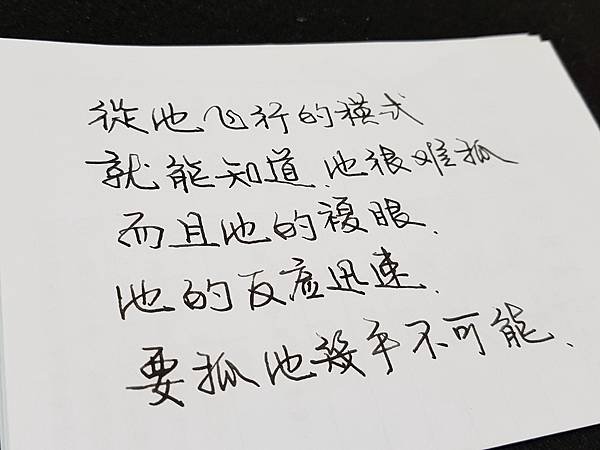 從他飞行的模式
就能知道.他很难抓
而且他的複眼.
他的反應迅速.
要抓他幾乎不可能.